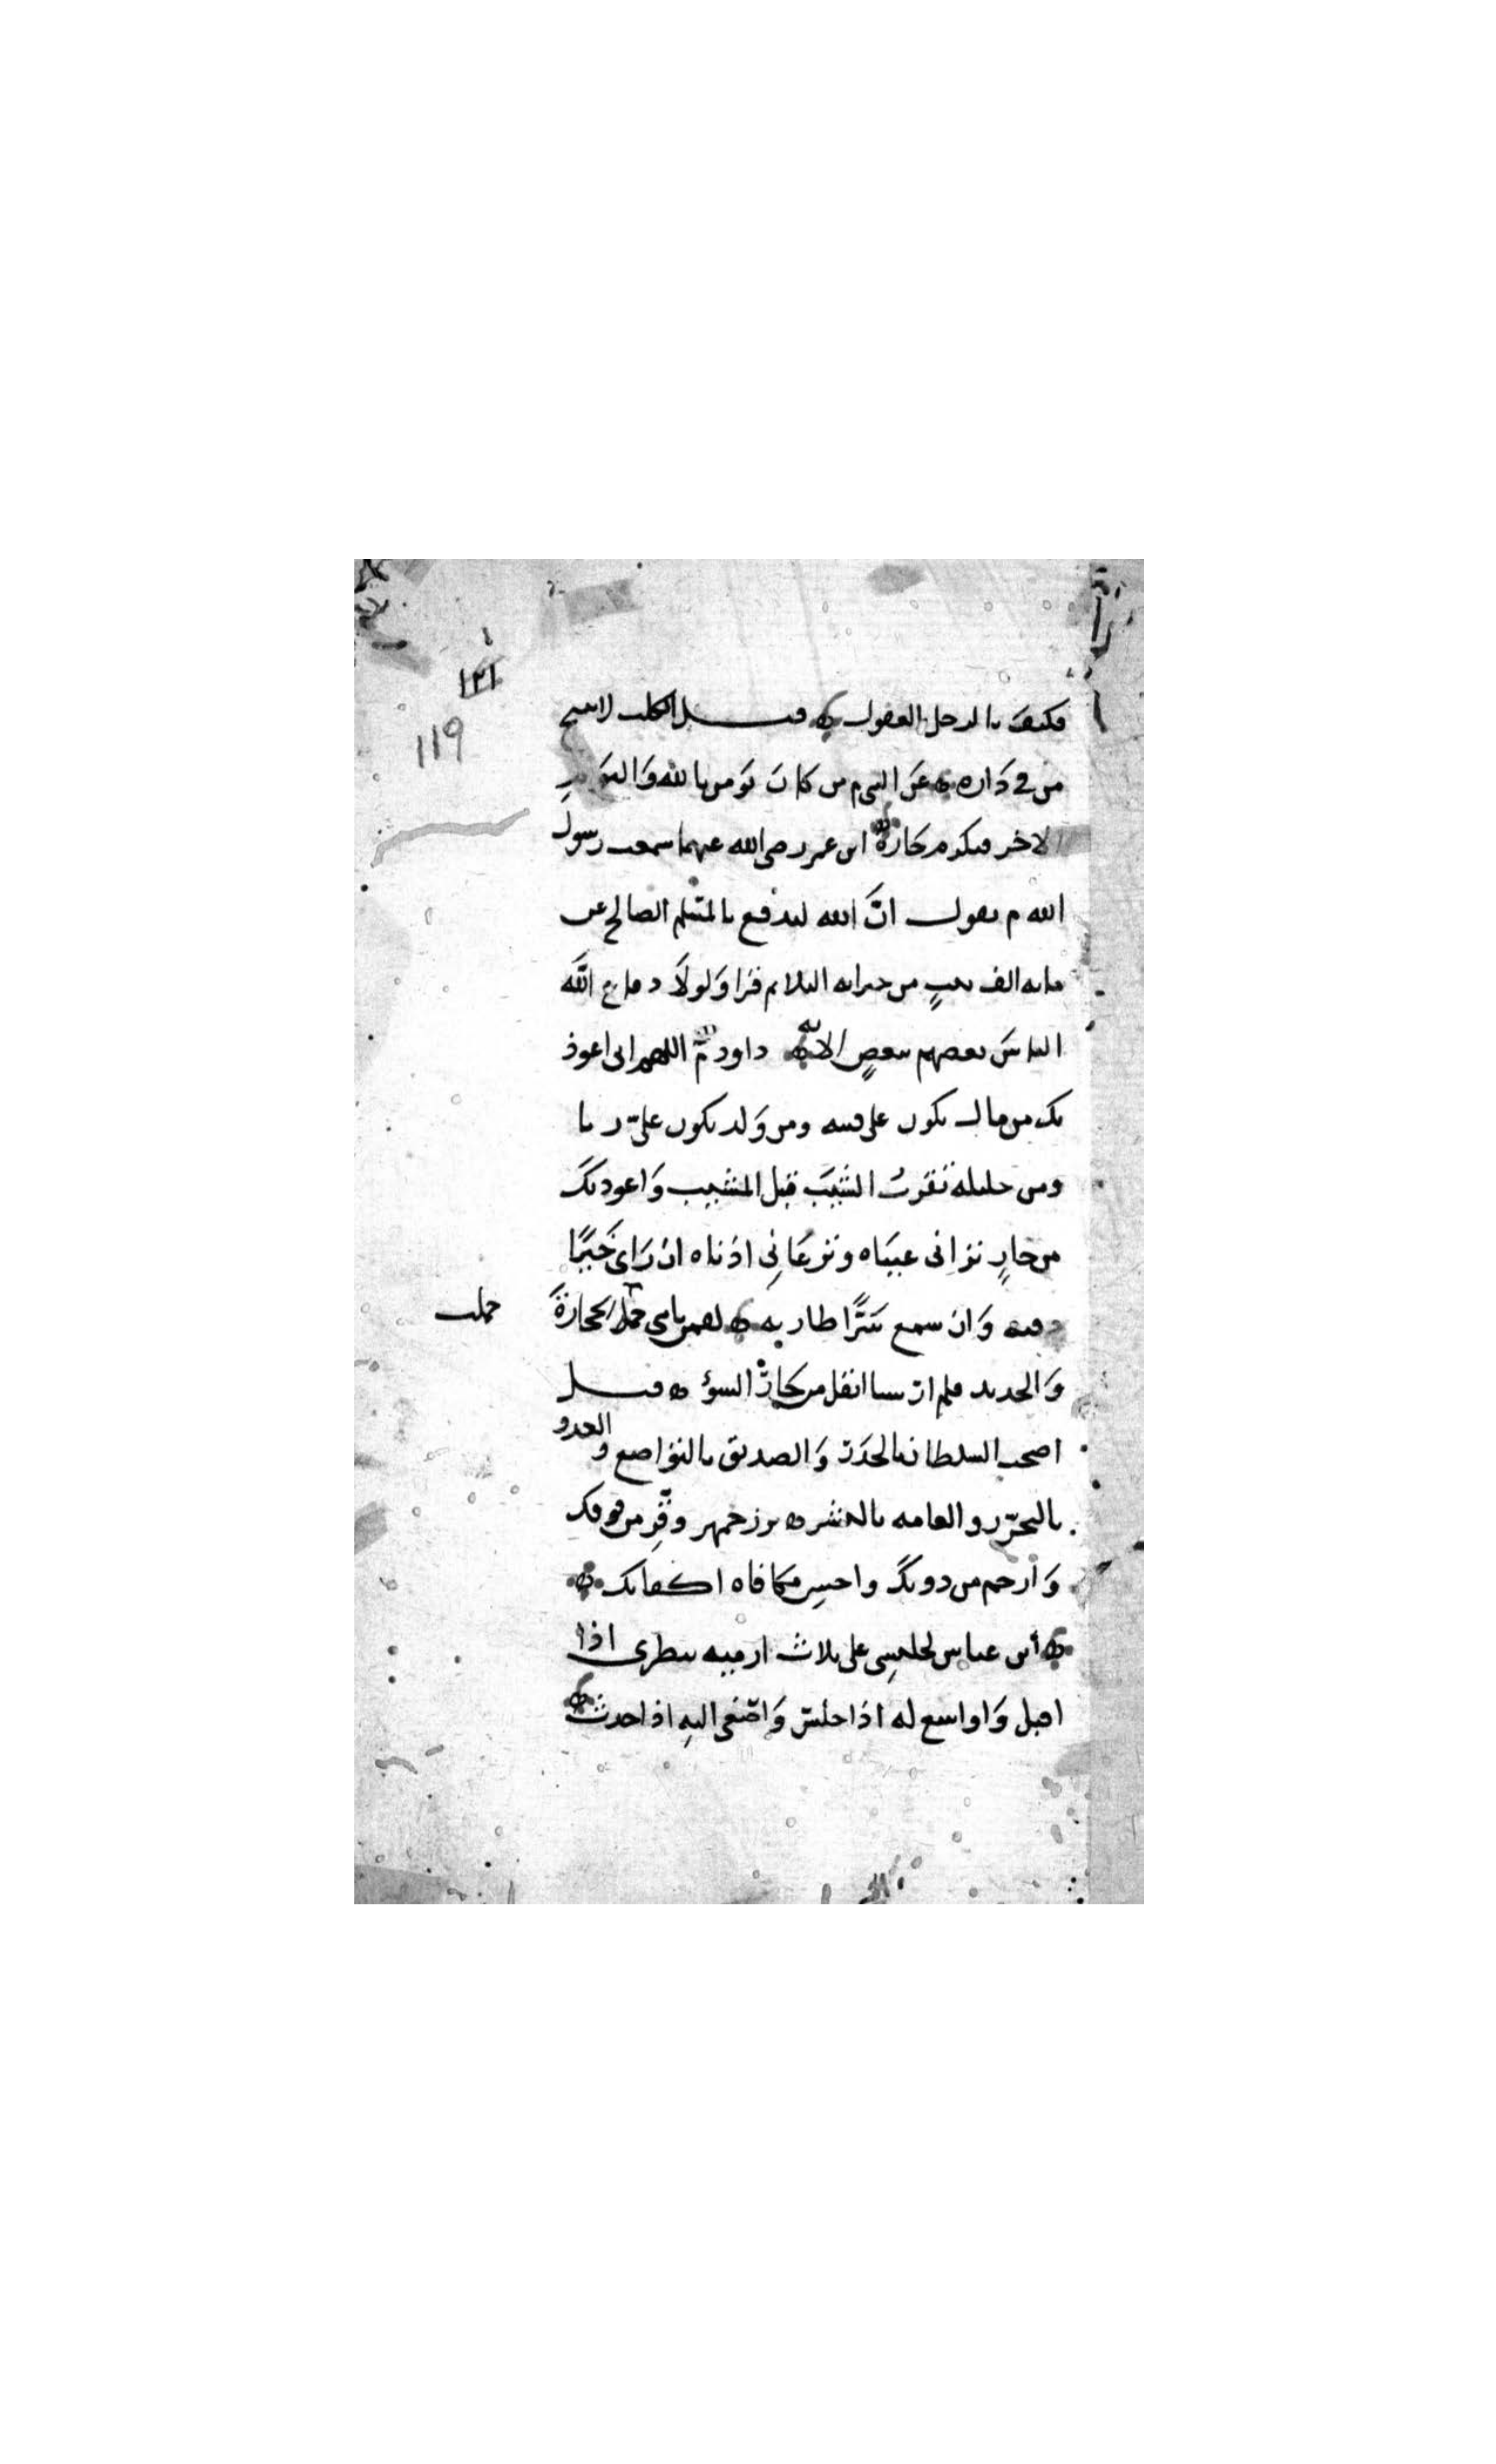 ١٢١
119
فكيف بالرجل العقول ه قيل الكلب لا ينبح
من في داره ه عن النبي م من كان يؤمن بالله وَاليَومِ
الاخر فليكرم جَارَهُ ابن عمر رضي الله عنهما سمعت رسول
الله م يقول انَّ الله ليدفع بالمسلم الصالح عن
مايه الف بيتٍ من جيرانه البلا ثم قرا وَلولَا دفاع اللَّه
الناسَ بعضهم ببعضٍ الايه داود م اللهم اني اعوذ
بك من مال يكون على فتنه ومن وَلد يكون عليّ ربا
ومن حليله تقربُ الشيبَ قبل المشيب وَاعوذ بكَ
من جارٍ تراني عيناه وترعَانِي اذناه ان رَاى خَيرًا
دفنه وَان سمع شرًّا طار به ه لقمن يا بني حملت الحجارةَ
حملت
وَالحديد فلم ار شيا اثقل من جار السوء ه قيل
اصحب السلطان بالحذر وَالصديق بالتواضع و العدو
بالتحرّز والعامه بالبشر ه بزرجمهر وقّر من فوقك
وَارحم من دونكَ واحسن مكافاه اكفايك ه
ه ابن عباس لجليسي على ثلاث ارميه بطرفي اذا
اقبل وَاواسع له اذا جلس وَاصغي اليه اذا حدث ه